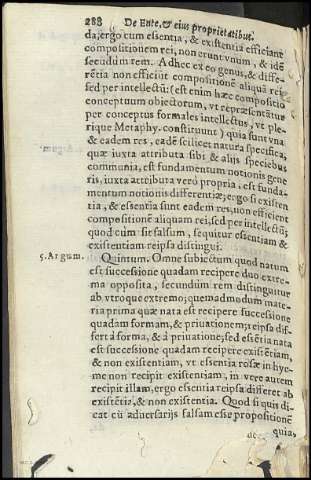 288 De Ente, & eius proprietatibus.
da, ergo cum essentia, & existentia efficiant
compositionem rei, non erunt vnum, & idē
secūdum rem. Adhec ex eo genus, & diffe-
rētia non efficiūt compositionē aliquā rei,
sed per intellectū: (est enim hæc compositio
conceptuum obiectorum, vt repræsentātur
per conceptus formales intellectus, vt ple-
rique Metaphy. constituunt) quia sunt vna
& eadem res, eadē scilicet natura specifica,
quæ iuxta attributa sibi & alijs speciebus
communia, est fundamentum notionis gene
ris, iuxta attributa verò propria, est funda-
mentum notionis differentiæ; ergo si existen
tia, & essentia sunt eadem res, non efficient
compositionē aliquam rei, sed per intellectū;
quod cum sit falsum, sequitur essentiam &
existentiam reipsa distingui.
5. Argum. Quintum. Omne subiectum quod natum
est successione quadam recipere duo extre-
ma opposita, secundùm rem distinguitur
ab vtroque extremo; quemadmodum mate-
ria prima quæ nata est recipere successione
quadam formam, & priuationem; reipsa dif-
fert à forma, & à priuatione; sed essētia nata
est successione quadam recipere existētiam,
& non existentiam, vt essentia rosæ in hye-
me non recipit existentiam, in vere autem
recipit illam, ergo essentia reipsa differet ab
existētia, & non existentia. Quod si quis di-
cat cū aduersarijs falsam esse propositionē
quia,